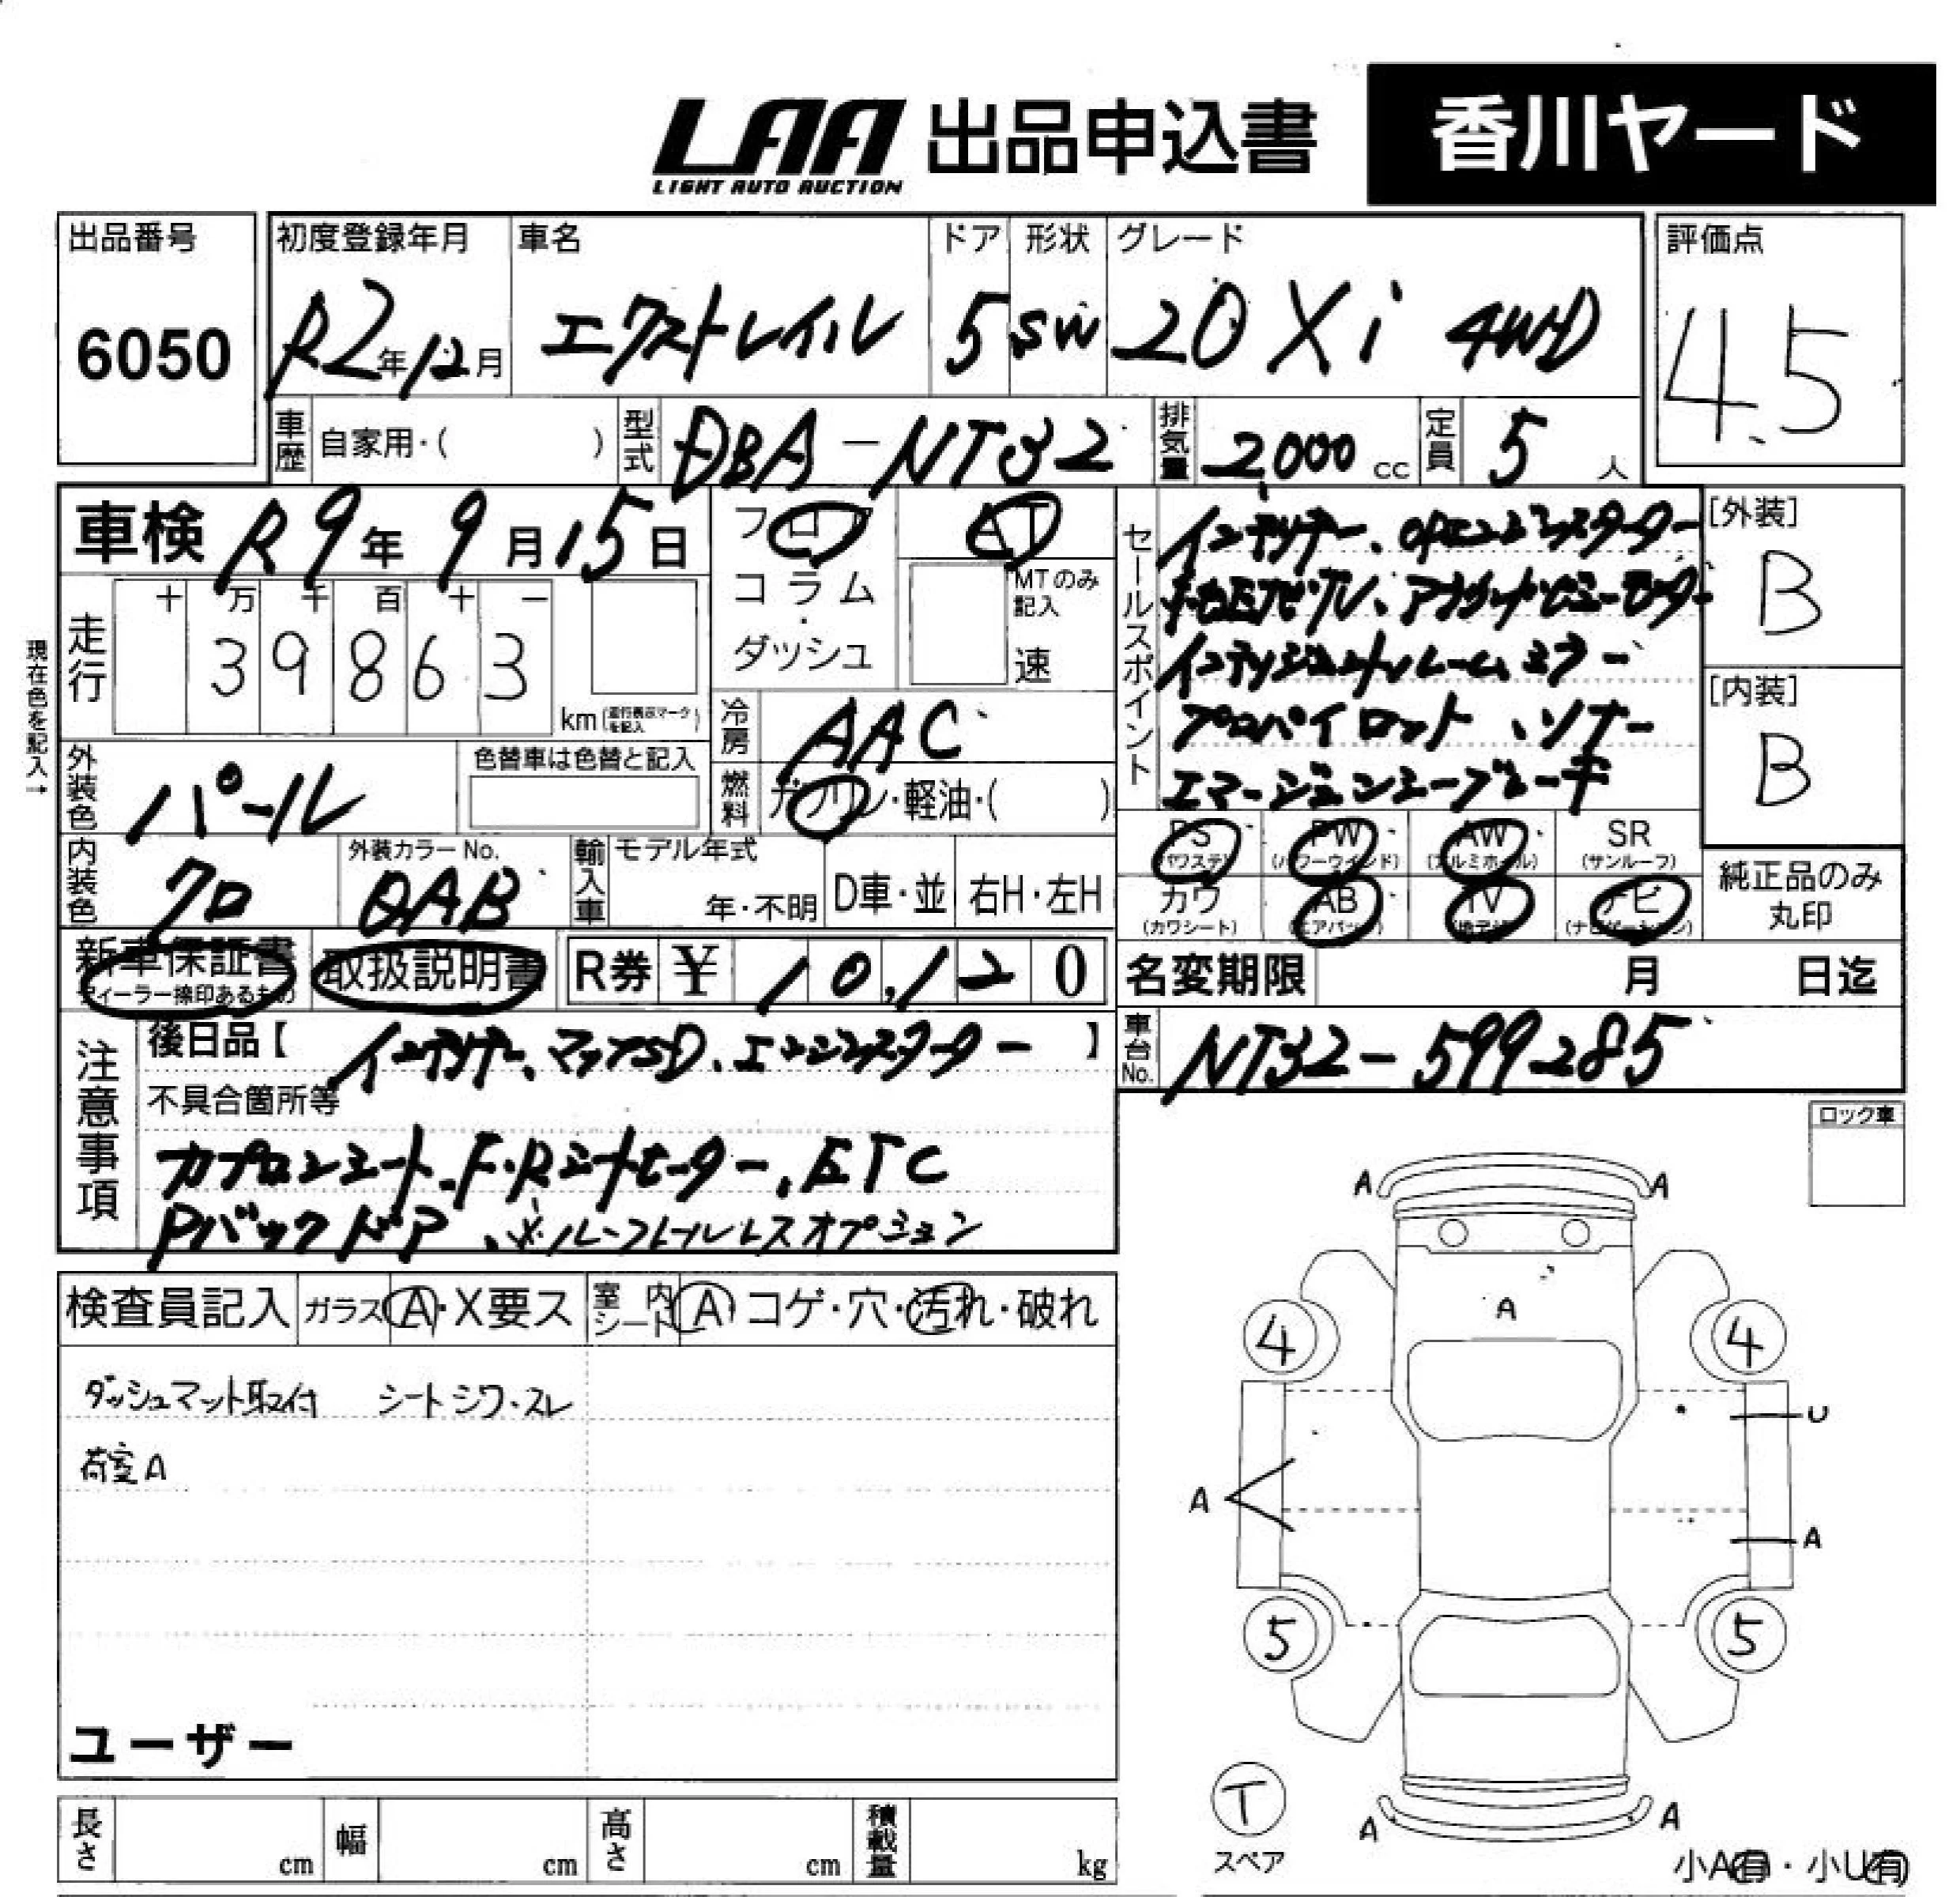 LAA 出品申込書 香川ヤード
LIGHT AUTO AUCTION
出品番号 初度登録年月 車名 ドア 形状 グレード 評価点
6050 R2年12月 エクストレイル 5 SW 20Xi 4WD 4.5
車歴 自家用・( ) 型式 DBA-NT32 排気量 2,000 cc 定員 5 人
車検 R9年9月15日 フロア AT
コラム・ダッシュ MTのみ記入 速
現在色を記入→
走行 十 万 千 百 十 一
39863 km
冷房 AAC
外装色 パール 色替車は色替と記入
燃料 ガソリン・軽油・( )
内装色 クロ 外装カラーNo. QAB 輸入車 モデル年式 年・不明 D車・並 右H・左H
セールスポイント
インテリキー、OPエンジンスターター
インテリジェントルームミラー
プロパイロット、ソナー
エマージェンシーブレーキ
[外装] B
[内装] B
PS (パワステ) PW (パワーウインド) AW (アルミホイール) SR (サンルーフ)
カワ (カワシート) AB (エアバッグ) TV (地デジ) ナビ (ナビゲーション)
純正品のみ丸印
新車保証書 ディーラー捺印あるもの 取扱説明書 R券 ¥ 10,120
名変期限 月 日迄
車台No. NT32-599285
注意事項
後日品【インテリキー、マップSD、エンジンスターター】
不具合箇所等
カプロンシート、F・Rシートヒーター、ETC
Pバックドア、※ルーフレールレスオプション
ロック車
検査員記入 ガラス A・X要ス 室内シート A コゲ・穴・汚れ・破れ
ダッシュマット取付 シートシワ・スレ
荷室A
ユーザー
A A
A
4 4
U
A
A
5 5
T
スペア
A A
小A(有)・小U(有)
長さ cm 幅 cm 高さ cm 積載量 kg